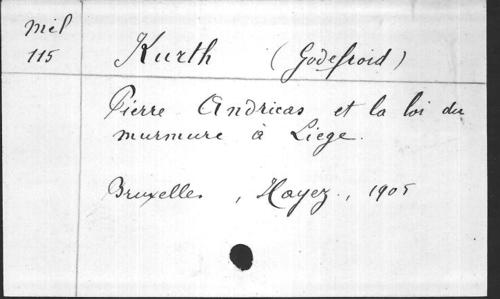 Mél
115
Kurth (Godefroid)
Pierre Andricas et la loi du
murmure à Liege.
Bruxelles, Hayez, 1905